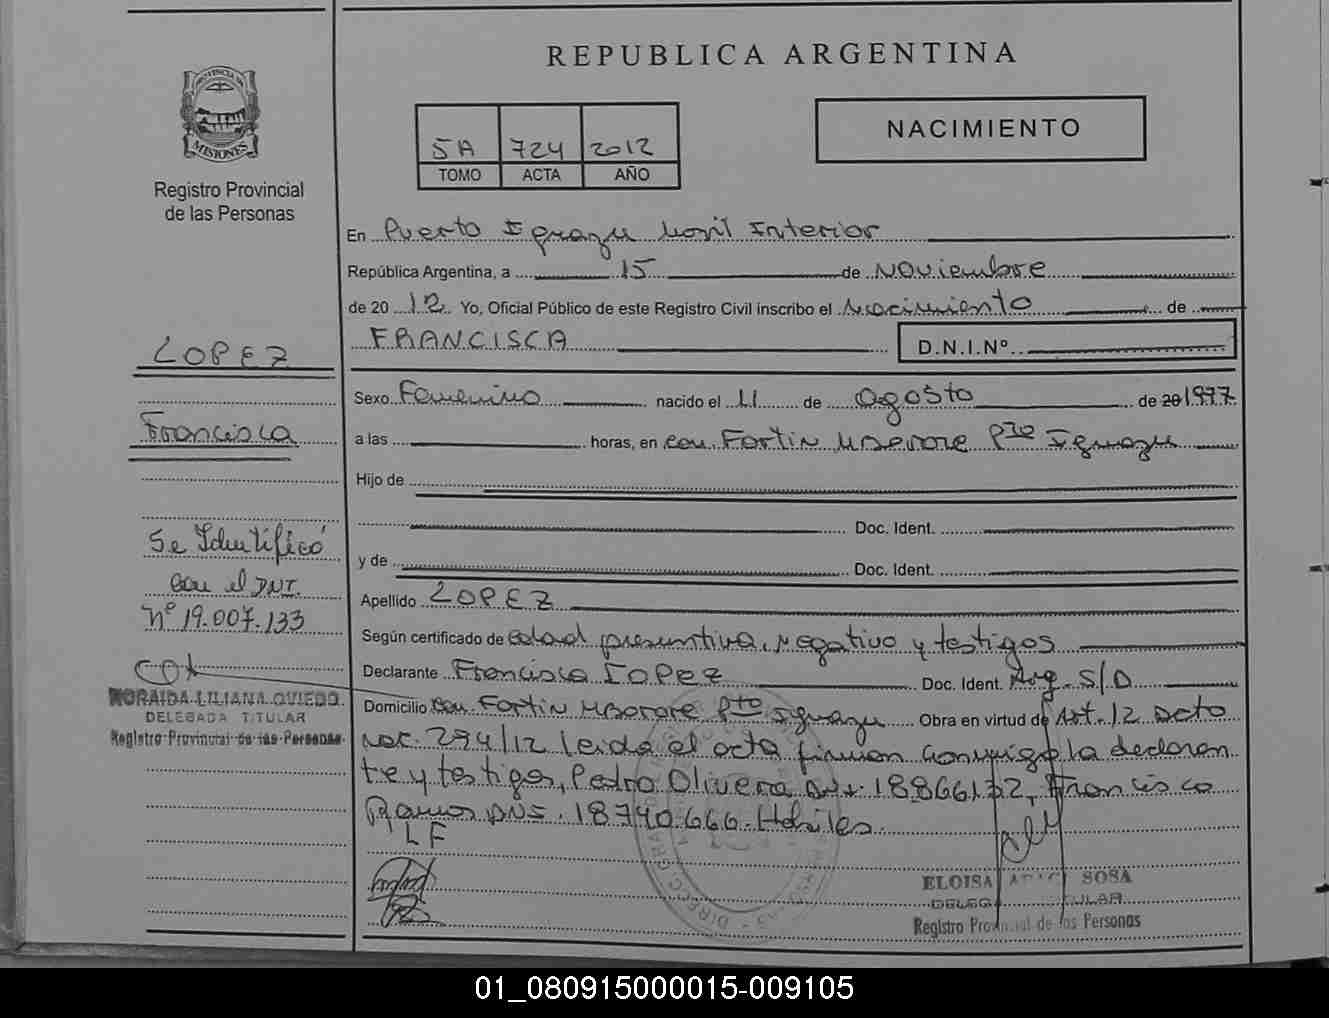 REPUBLICA ARGENTINA
PROVINCIA DE
MISIONES
Registro Provincial
de las Personas
5A 724 2012
TOMO ACTA AÑO
NACIMIENTO
En Puerto Iguazu Movil Interior
República Argentina, a 15 de Noviembre
de 20 12 Yo, Oficial Público de este Registro Civil inscribo el Nacimiento de
FRANCISCA D.N.I.Nº
Sexo Femenino nacido el 11 de agosto de 20 1977
a las horas, en com. Fortin Mborore Pto Iguazu
Hijo de
Doc. Ident.
y de Doc. Ident.
Apellido LOPEZ
Según certificado de edad presuntiva, negativo y testigos
Declarante Francisca Lopez Doc. Ident. Arg. S/D
Domicilio com Fortin Mborore Pto Iguazu Obra en virtud de Art. 12 acta
nac. 294/12 leida el acta firman conmigo la declaran
te y testigos, Pedro Olivera DNI. 18866132, Francisco
Ramos DNI. 18740.666. Habiles
L F
ELOISA SOSA
Registro Provincial de las Personas
LOPEZ
Francisca
Se Identificó
con el DNI.
Nº 19.007.133
NORAIDA LILIANA OVIEDO
DELEGADA TITULAR
Registro Provincial de las Personas
01_080915000015-009105